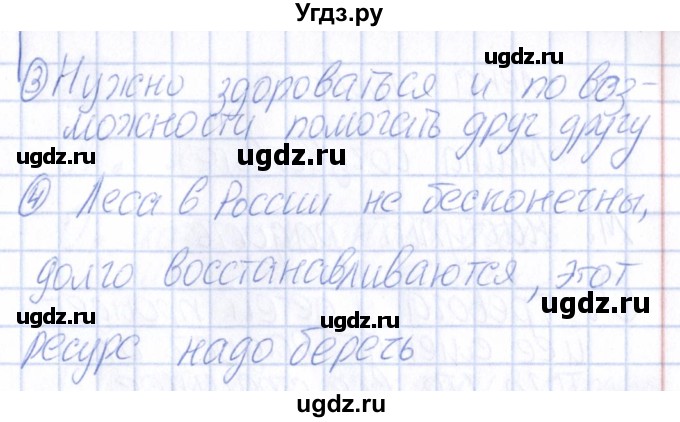 Угдз.ру
ugdz.ru
③ Нужно здороваться и по воз-
можности помогать друг другу
ugdz.ru ugdz.ru ugdz.ru
④ Леса в России не бесконечны,
долго восстанавливаются, этот
ugdz.ru ugdz.ru ugdz.ru
ресурс надо беречь
ugdz.ru